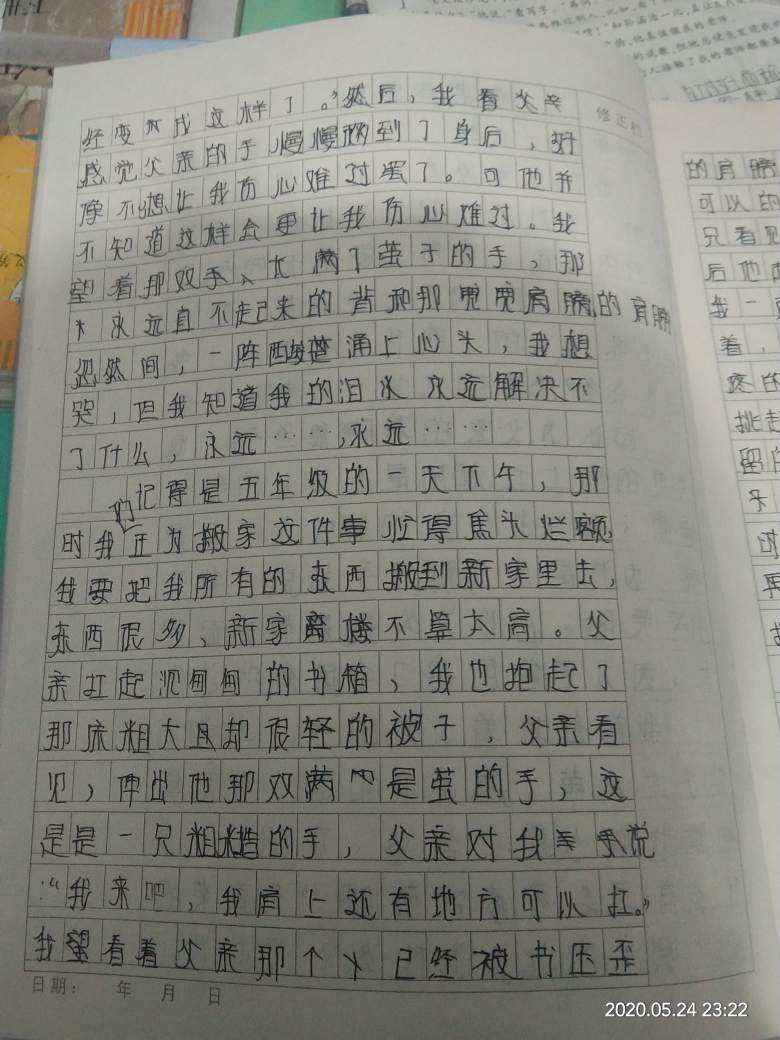 经变成这样了。”然后，我看父亲
感觉父亲的手慢慢挪到了身后，好
像不想让我伤心难过罢了。可他并
不知道这样会更让我伤心难过。我
望着那双手、太满了茧子的手，那
永远直不起来的背和那宽宽肩膀的肩膀
忽然间，一阵酸楚涌上心头，我想
哭，但我知道我的泪水永远解决不
了什么，永远……，永远……
记得是五年级的一天下午，那
时我们正为搬家这件事忙得焦头烂额，
我要把我所有的东西搬到新家里去，
东西很多、新家离楼不算太高。父
亲扛起沉甸甸的书箱、我也抱起了
那床粗大且却很轻的被子，父亲看
见，伸出他那双满是茧的手，这
是是一只粗糙的手，父亲对我说
：“我来吧，我肩上还有地方可以扛。”
我望看着父亲那个已经被书压歪
日期： 年 月 日
修正栏
的肩膀
可以的
只看见
后他
我一
着，
疼的
挑起
留的
2020.05.24 23:22